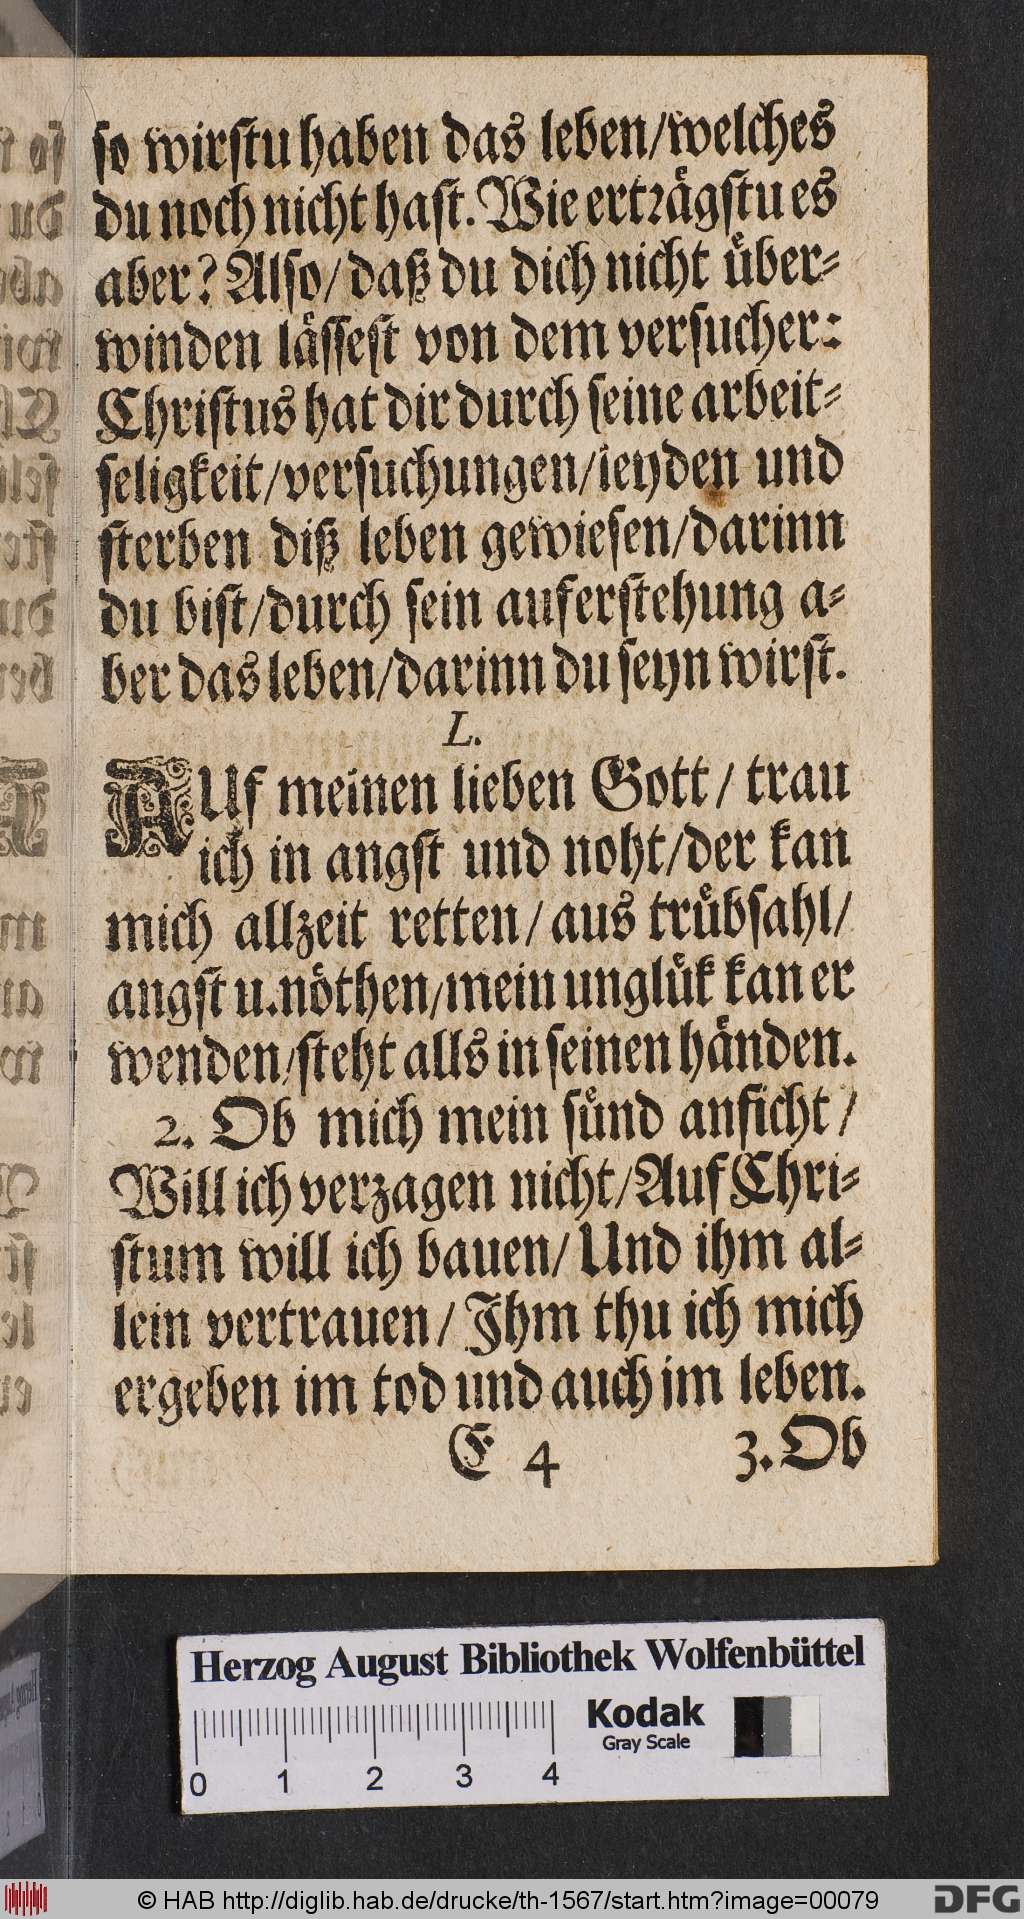 so wirstu haben das leben/welches
du noch nicht hast. Wie erträgstu es
aber? Also/daß du dich nicht über-
winden lässest von dem versucher:
Christus hat dir durch seine arbeit-
seligkeit/versuchungen/leyden und
sterben diß leben gewiesen/darinn
du bist/durch sein auferstehung a-
ber das leben/darinn du seyn wirst.
L.
AUf meinen lieben Gott/ trau
ich in angst und noht/der kan
mich allzeit retten/aus trübsahl/
angst u.nöthen/mein unglük kan er
wenden/steht alls in seinen händen.
2. Ob mich mein sünd anficht/
Will ich verzagen nicht/Auf Chri-
stum will ich bauen/Und ihm al-
lein vertrauen/Ihm thu ich mich
ergeben im tod und auch im leben.
E 4 3. Ob
Herzog August Bibliothek Wolfenbüttel
Kodak
Gray Scale
0 1 2 3 4
© HAB http://diglib.hab.de/drucke/th-1567/start.htm?image=00079
DFG